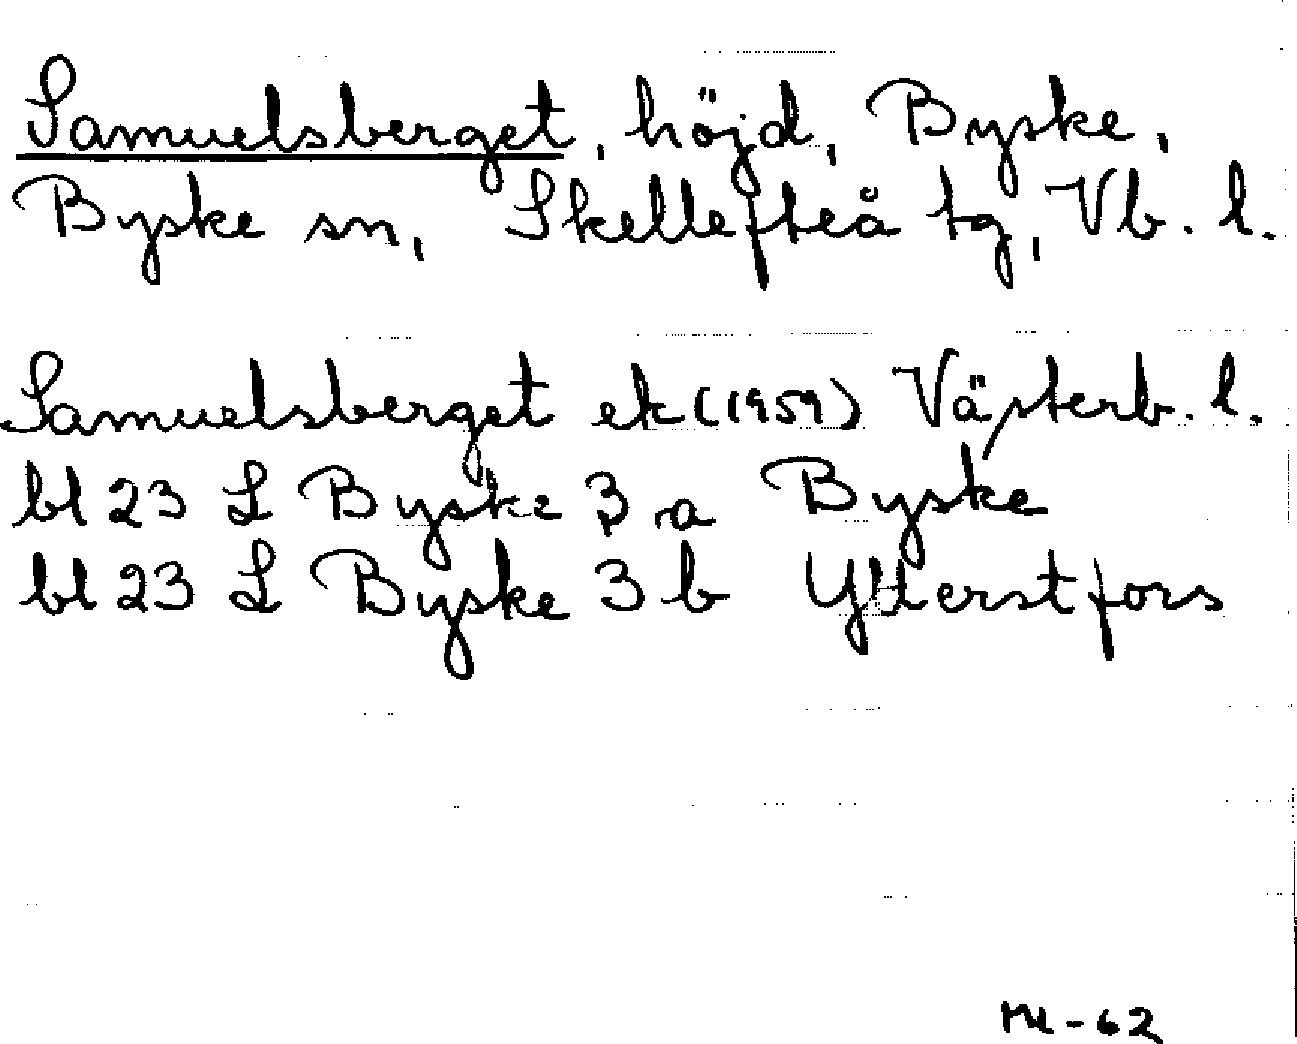 Samuelsberget, höjd, Byske,
Byske sn, Skellefteå tg, Vb. l.
Samuelsberget ek (1959) Västerb. l.
bl 23 L Byske 3 a Byske
bl 23 L Byske 3 b Ytterstfors
-62